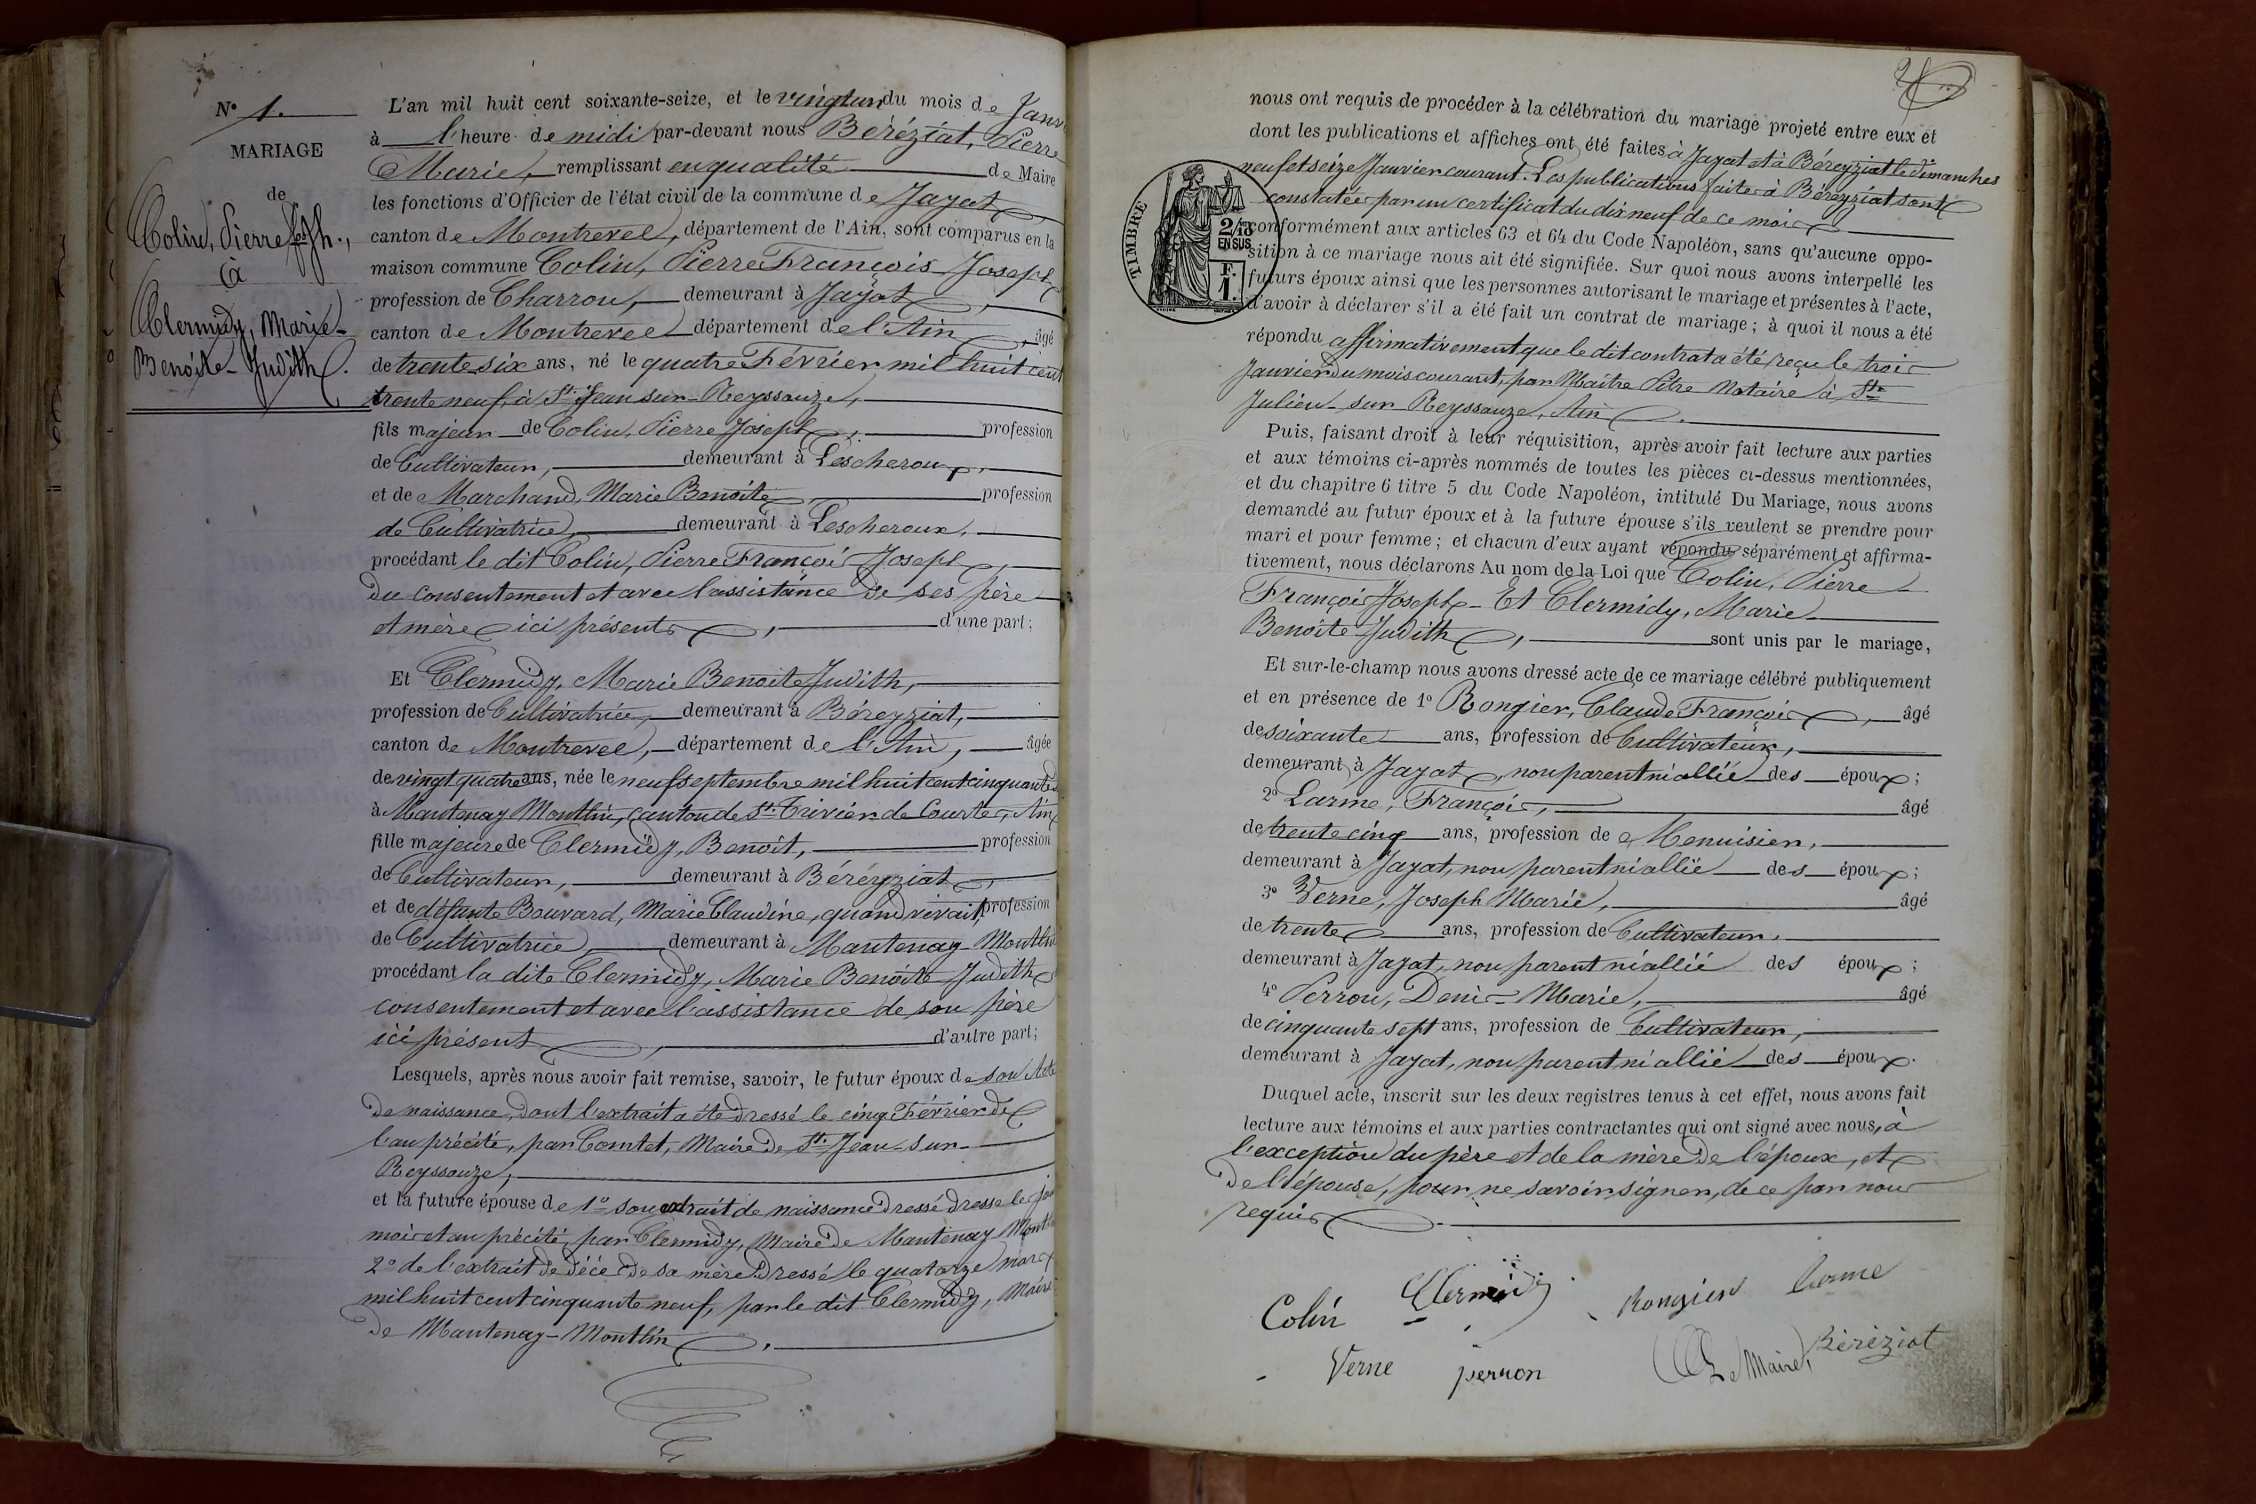 N° 1.
MARIAGE
de
Colin, Pierre fçs Jh.,
à
Clermidy, Marie-
Benoite-Judith.
L'an mil huit cent soixante-seize, et le vingtun du mois de Janv
à l'heure de midi par-devant nous Béréziat, Pierre
Marie, remplissant en qualité de Maire
les fonctions d'Officier de l'état civil de la commune de Jayat
canton de Montrevel, département de l'Ain, sont comparus en la
maison commune Colin, Pierre François Joseph
profession de Charron, demeurant à Jayat,
canton de Montrevel département de l'Ain, âgé
de trente six ans, né le quatre Février mil huit cent
trente neuf, à St. Jean sur-Reyssouze,
fils majeur de Colin, Pierre Joseph, profession
de Cultivateur, demeurant à Lescheroux,
et de Marchand, Marie Benoite, profession
de Cultivatrice, demeurant à Lescheroux,
procédant le dit Colin, Pierre François Joseph,
du consentement et avec l'assistance de ses père
et mère ici présents, d'une part;
Et Clermidy, Marie Benoite Judith,
profession de Cultivatrice, demeurant à Béreyziat,
canton de Montrevel, département de l'Ain, âgée
de vingt quatre ans, née le neuf septembre mil huit cent cinquante
à Mantenay Montlin, canton de St. Trivier de Courtes, Ain
fille majeure de Clermidy, Benoît, profession
de Cultivateur, demeurant à Béréyziat,
et de défunte Bouvard, Marie Claudine, quand vivait, profession
de Cultivatrice, demeurant à Mantenay Montlin
procédant la dite Clermidy, Marie Benoite Judith
consentement et avec l'assistance de son père
ici présent, d'autre part;
Lesquels, après nous avoir fait remise, savoir, le futur époux de son Acte
de naissance, dont l'extrait a été dressé le cinq Février de
l'an précité, par Comtet, Maire de St. Jean-sur-
Reyssouze,
et la future épouse de 1° son extrait de naissance dressé dresse le jou
mois et an précité, par Clermidy, Maire de Mantenay Montl
2° de l'extrait de décès de sa mère dressé le quatorze mars
mil huit cent cinquante neuf, par le dit Clermidy, Maire
de Mantenay-Montlin.
nous ont requis de procéder à la célébration du mariage projeté entre eux et
dont les publications et affiches ont été faites à Jayat et à Béreyziat le dimanches
neuf et seize Janvier courant. Les publications faites à Béreyziat sont
constatées par un certificat du dix neuf de ce mois
conformément aux articles 63 et 64 du Code Napoléon, sans qu'aucune oppo-
sition à ce mariage nous ait été signifiée. Sur quoi nous avons interpellé les
futurs époux ainsi que les personnes autorisant le mariage et présentes à l'acte,
d'avoir à déclarer s'il a été fait un contrat de mariage; à quoi il nous a été
répondu affirmativement que le dit contrat a été reçu le trois
Janvier du mois courant, par Maître Pitre Notaire à St.
Julien-sur Reyssouze, Ain.
TIMBRE
2/10
EN SUS
F.
1.
Puis, faisant droit à leur réquisition, après avoir fait lecture aux parties
et aux témoins ci-après nommés de toutes les pièces ci-dessus mentionnées,
et du chapitre 6 titre 5 du Code Napoléon, intitulé Du Mariage, nous avons
demandé au futur époux et à la future épouse s'ils veulent se prendre pour
mari et pour femme; et chacun d'eux ayant répondu séparément et affirma-
tivement, nous déclarons Au nom de la Loi que Colin, Pierre
François Joseph - Et Clermidy, Marie
Benoite Judith, sont unis par le mariage,
Et sur-le-champ nous avons dressé acte de ce mariage célébré publiquement
et en présence de 1° Rongier, Claude François, âgé
de soixante ans, profession de Cultivateur,
demeurant à Jayat, non parent ni allié des époux;
2° Larme, François, âgé
de trente cinq ans, profession de Menuisier,
demeurant à Jayat, non parent ni allié des époux;
3° Verne, Joseph Marie, âgé
de trente ans, profession de Cultivateur,
demeurant à Jayat, non parent ni allié des époux;
4° Perron, Denis-Marie, âgé
de cinquante sept ans, profession de Cultivateur,
demeurant à Jayat, non parent ni allié des époux.
Duquel acte, inscrit sur les deux registres tenus à cet effet, nous avons fait
lecture aux témoins et aux parties contractantes qui ont signé avec nous, à
l'exception du père et de la mère de l'époux, et
de l'épouse, pour ne savoir signer, de ce par nous
requis.
Colin Clermidy Rongier Larme
Verne perron Le Maire, Béréziat